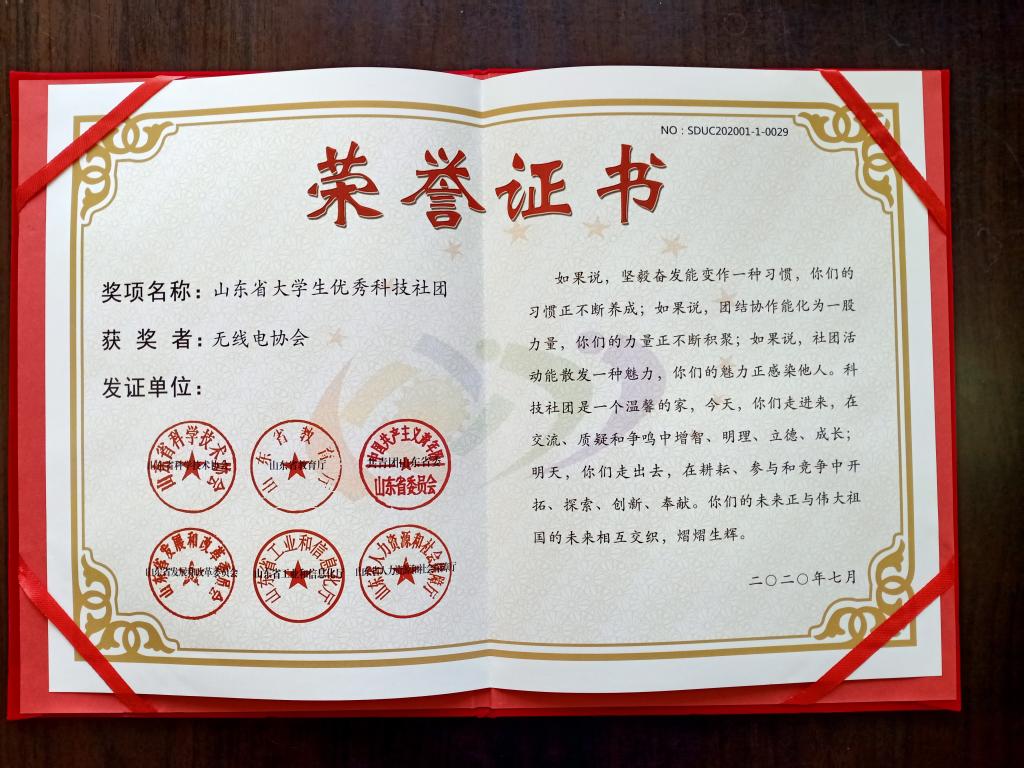 NO：SDUC202001-1-0029
荣誉证书
奖项名称：山东省大学生优秀科技社团
获奖者：无线电协会
发证单位：
山东省科学技术协会
山东省科学技术协会
山东省教育厅
山东省教育厅
中国共产主义青年团
共青团山东省委
山东省委员会
山东省发展和改革委员会
山东省发展和改革委员会
山东省工业和信息化厅
山东省工业和信息化厅
山东省人力资源和社会保障厅
山东省人力资源和社会保障厅
如果说，坚毅奋发能变作一种习惯，你们的
习惯正不断养成；如果说，团结协作能化为一股
力量，你们的力量正不断积聚；如果说，社团活
动能散发一种魅力，你们的魅力正感染他人。科
技社团是一个温馨的家，今天，你们走进来，在
交流、质疑和争鸣中增智、明理、立德、成长；
明天，你们走出去，在耕耘、参与和竞争中开
拓、探索、创新、奉献。你们的未来正与伟大祖
国的未来相互交织，熠熠生辉。
二〇二〇年七月